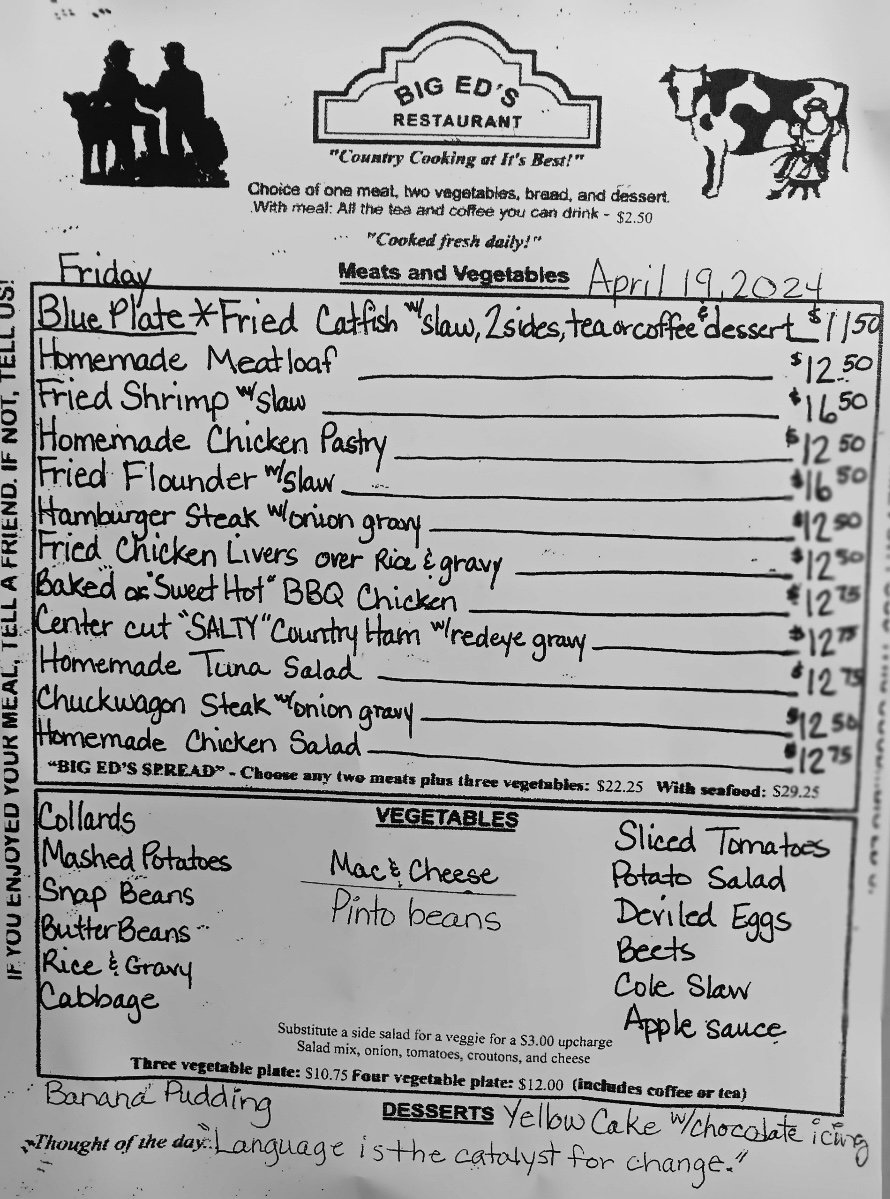 BIG ED'S
RESTAURANT
"Country Cooking at It's Best!"
Choice of one meat, two vegetables, bread, and dessert.
With meal: All the tea and coffee you can drink - $2.50
"Cooked fresh daily!"
Friday Meats and Vegetables April 19, 2024
Blue Plate * Fried Catfish w/ slaw, 2 sides, tea or coffee & dessert $11.50
Homemade Meatloaf $12.50
Fried Shrimp w/ slaw $16.50
Homemade Chicken Pastry $12.50
Fried Flounder w/ slaw $16.50
Hamburger Steak w/ onion gravy $12.50
Fried Chicken Livers over Rice & gravy $12.50
Baked or "Sweet Hot" BBQ Chicken $12.75
Center cut "SALTY" Country Ham w/ redeye gravy $12.75
Homemade Tuna Salad $12.75
Chuckwagon Steak w/ onion gravy $12.50
Homemade Chicken Salad $12.75
"BIG ED'S SPREAD" - Choose any two meats plus three vegetables: $22.25 With seafood: $29.25
VEGETABLES
Collards
Mashed Potatoes
Snap Beans
Butter Beans
Rice & Gravy
Cabbage
Mac & Cheese
Pinto beans
Sliced Tomatoes
Potato Salad
Deviled Eggs
Beets
Cole Slaw
Apple sauce
Substitute a side salad for a veggie for a $3.00 upcharge
Salad mix, onion, tomatoes, croutons, and cheese
Three vegetable plate: $10.75 Four vegetable plate: $12.00 (includes coffee or tea)
Banana Pudding DESSERTS Yellow Cake w/ chocolate icing
Thought of the day: "Language is the catalyst for change."
IF YOU ENJOYED YOUR MEAL, TELL A FRIEND. IF NOT, TELL US!